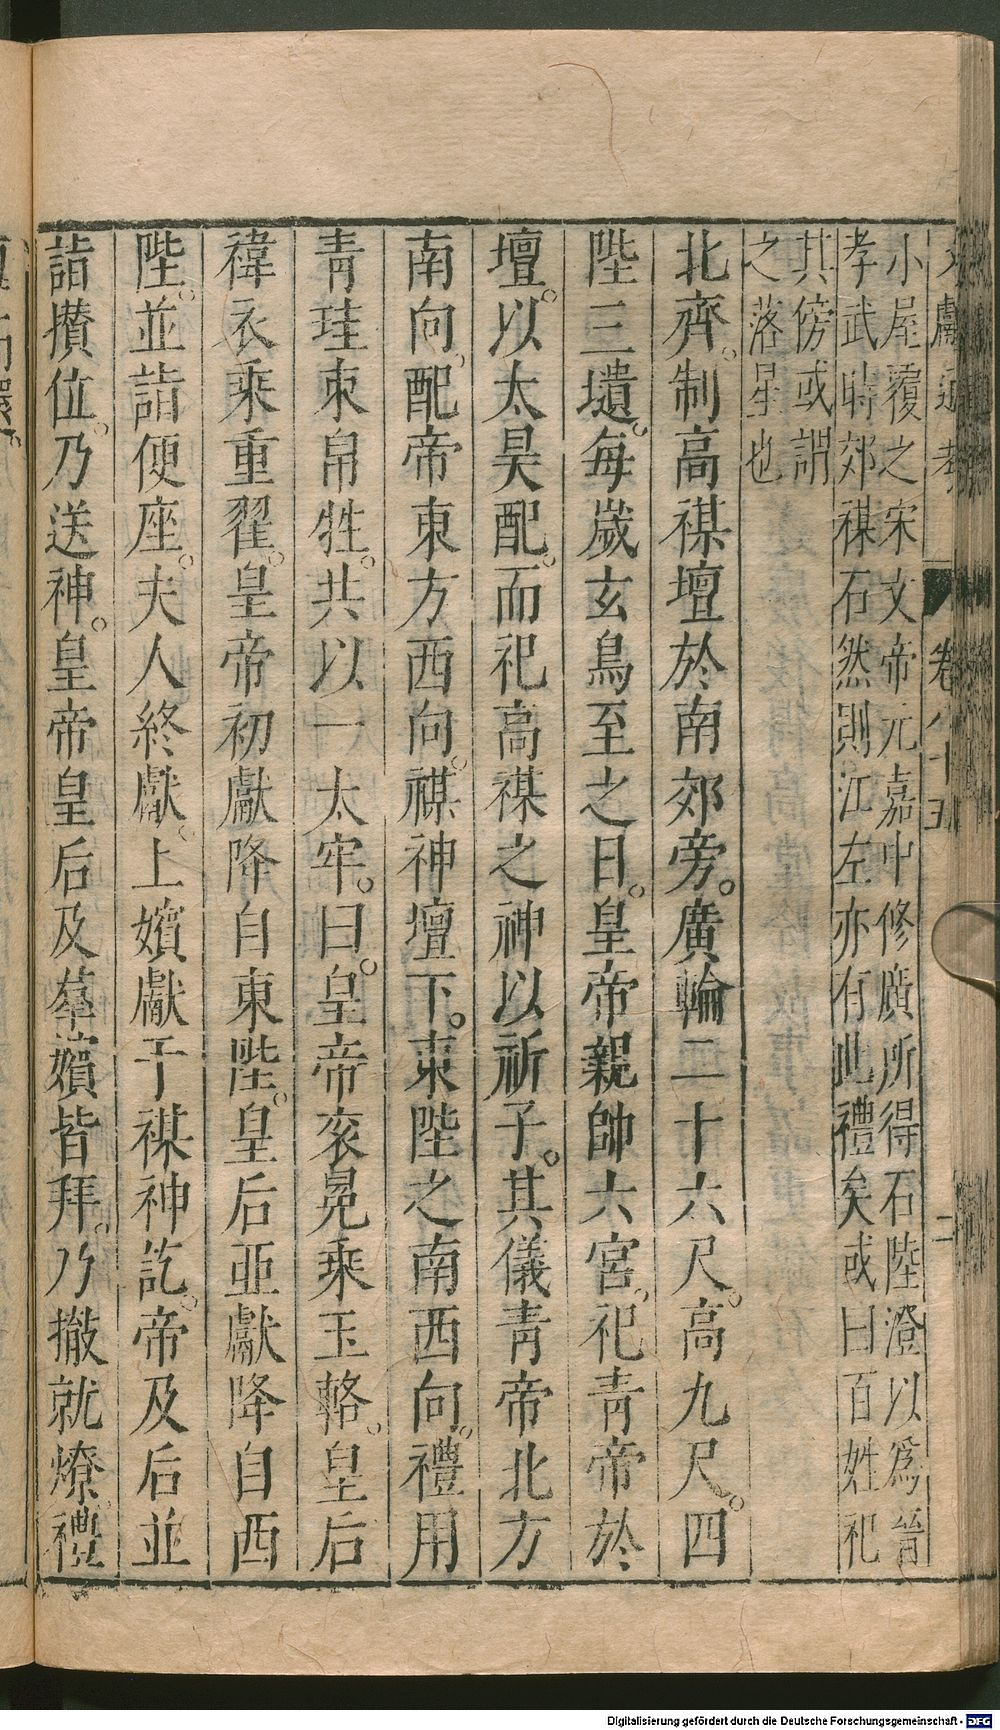 文獻通考 卷八十五 二
小屋覆之宋文帝元嘉中修廣所得石陸澄以爲晉
孝武時郊禖石然則江左亦有此禮矣或曰百姓祀
其傍或謂
之落星也
北齊。制高禖壇於南郊旁。廣輪二十六尺。高九尺。四
陛三壝。每歲玄鳥至之日。皇帝親帥六宮。祀青帝於
壇。以太昊配。而祀高禖之神以祈子。其儀青帝北方
南向。配帝東方西向。禖神壇下。東陛之南西向。禮用
青珪束帛牲。共以一太牢。曰。皇帝衮冕乘玉輅。皇后
褘衣乘重翟。皇帝初獻降自東陛。皇后亞獻降自西
陛。並詣便座。夫人終獻。上嬪獻于禖神訖。帝及后並
詣攢位。乃送神。皇帝皇后及羣嬪皆拜。乃撤就燎。禮
Digitalisierung gefördert durch die Deutsche Forschungsgemeinschaft - DFG